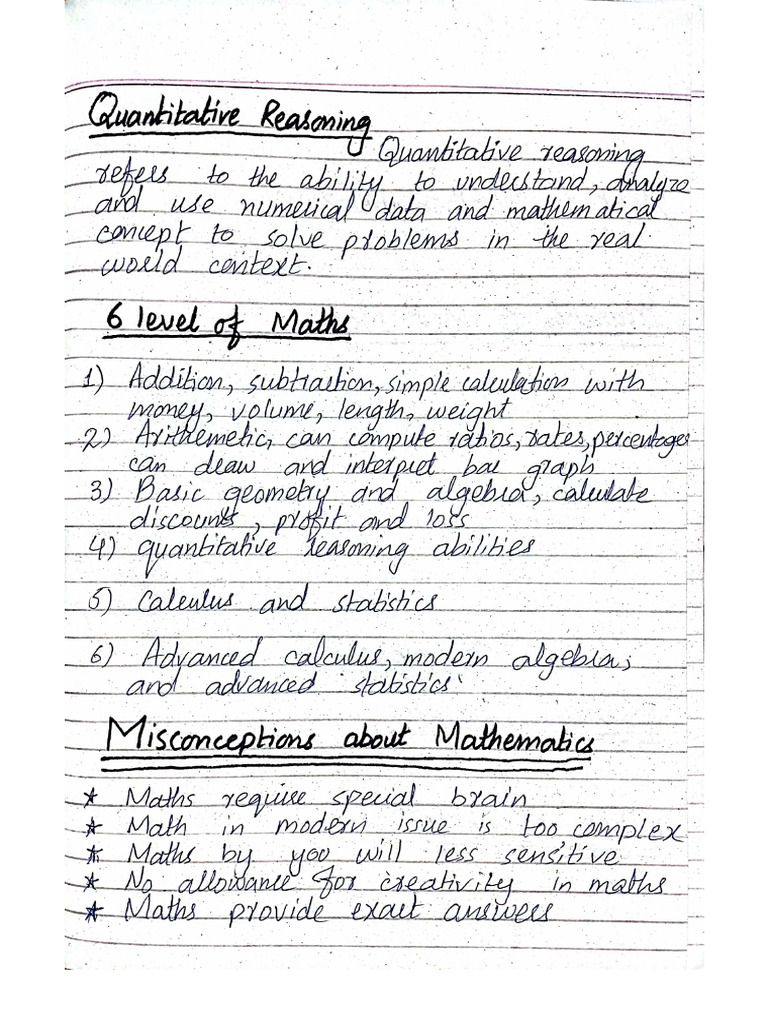 Quantitative Reasoning
Quantitative reasoning
refers to the ability to understand, analyze
and use numerical data and mathematical
concept to solve problems in the real
world context.
6 level of Maths
1) Addition, subtraction, simple calculation with
money, volume, length, weight
2) Arithemetic, can compute ratios, rates, percentages
can draw and interpret bar graph
3) Basic geometry and algebra, calculate
discounts, profit and loss
4) quantitative reasoning abilities
5) Calculus and statistics
6) Advanced calculus, modern algebra,
and advanced statistics.
Misconceptions about Mathematics
* Maths require special brain
* Math in modern issue is too complex
* Maths by you will less sensitive
* No allowance for creativity in maths
* Maths provide exact answers